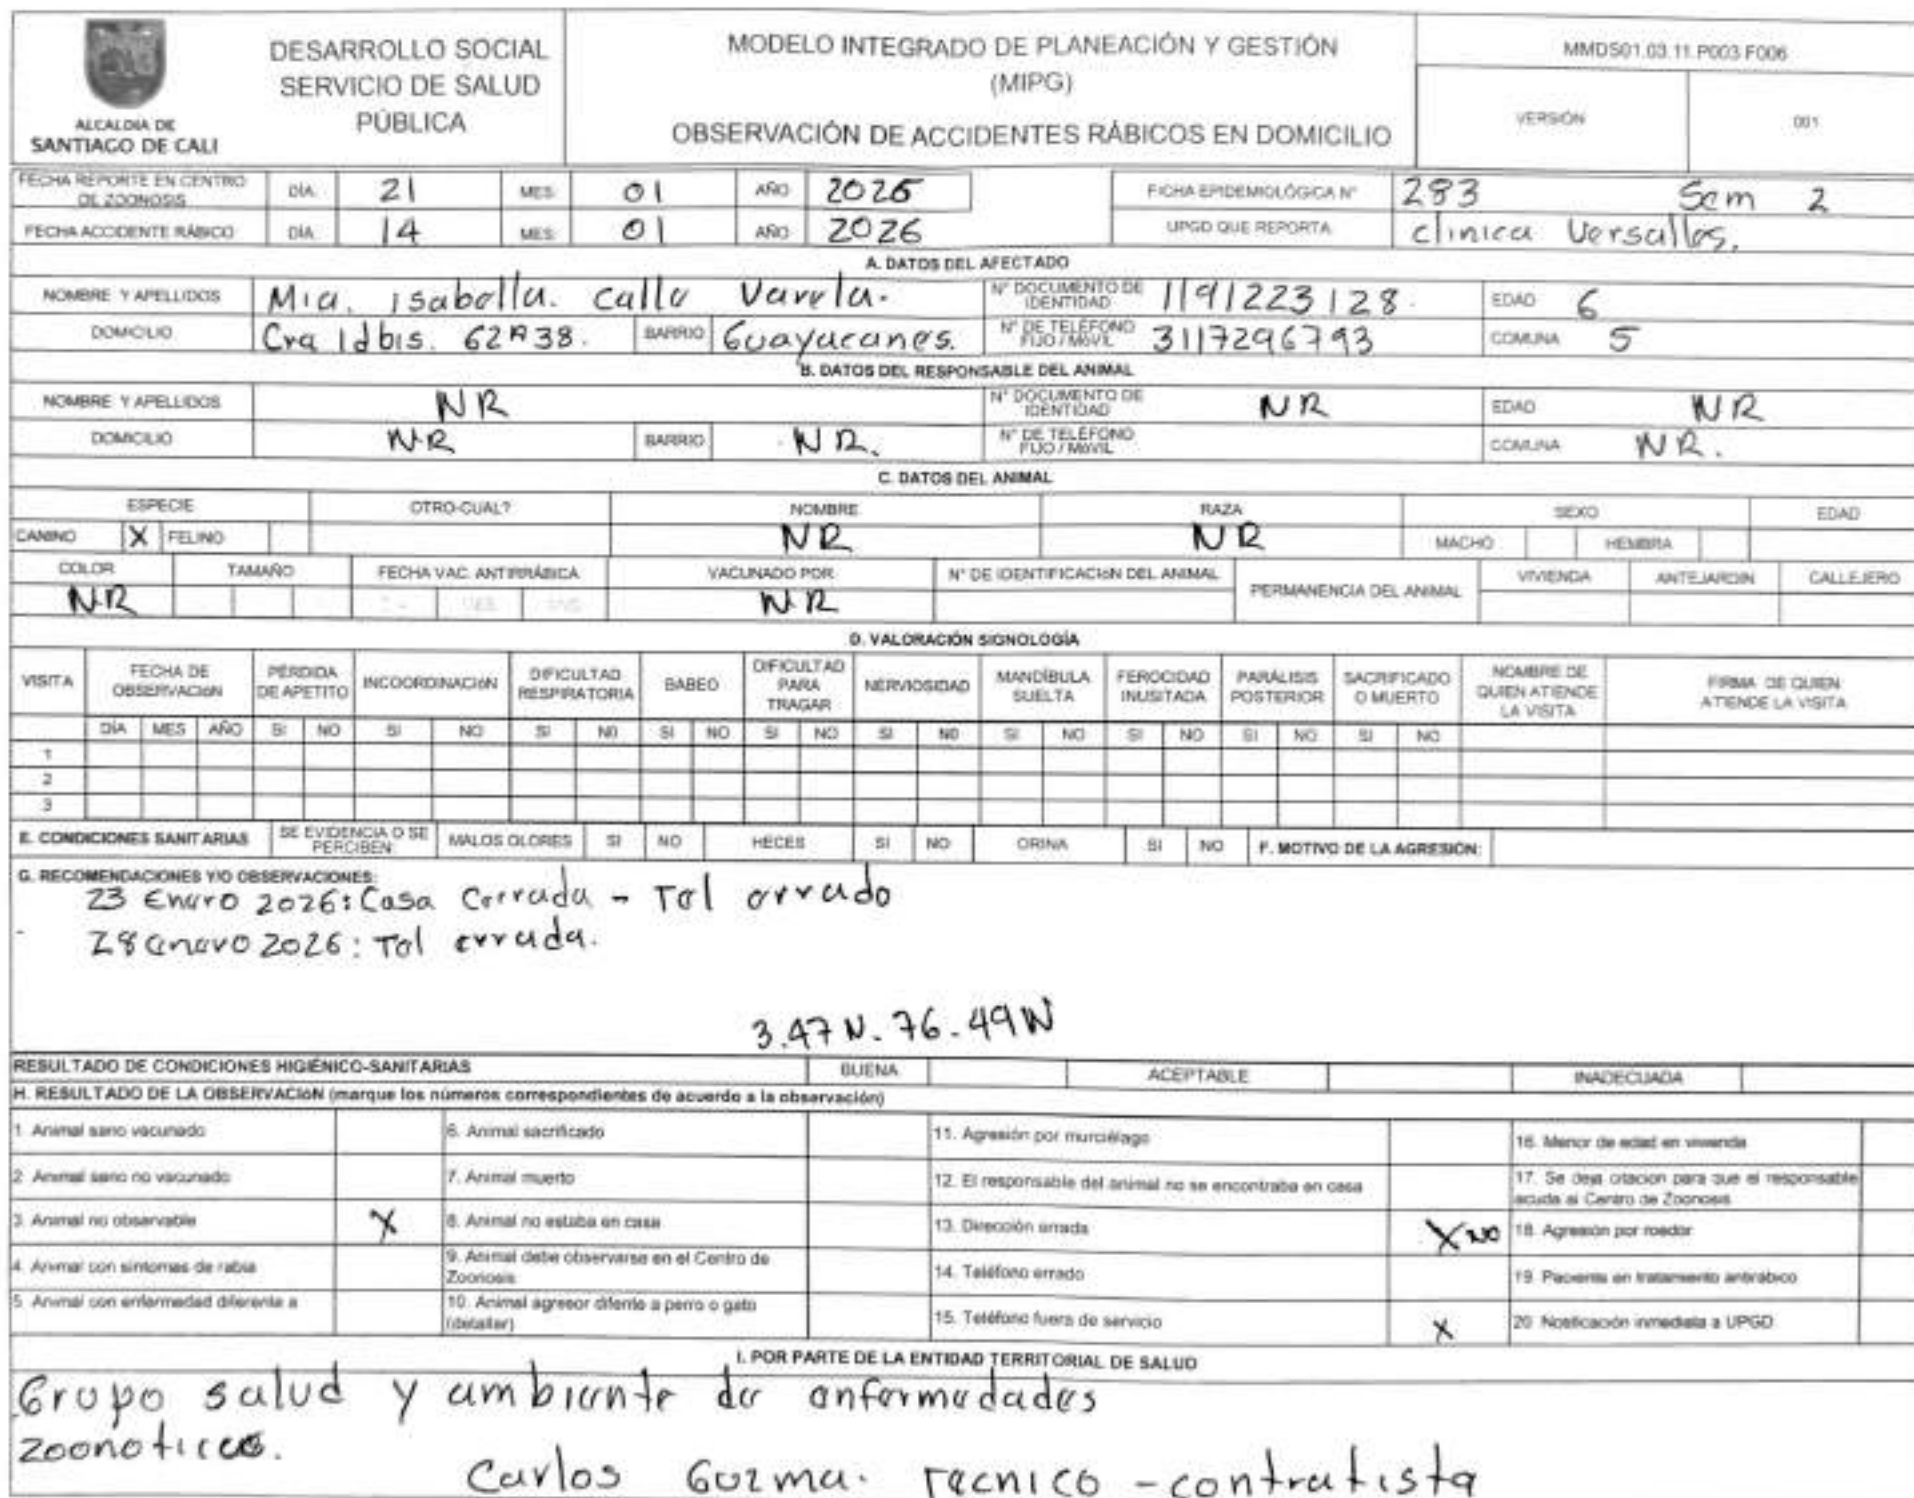 ALCALDIA DE
SANTIAGO DE CALI
DESARROLLO SOCIAL
SERVICIO DE SALUD
PÚBLICA
MODELO INTEGRADO DE PLANEACIÓN Y GESTIÓN
(MIPG)
OBSERVACIÓN DE ACCIDENTES RÁBICOS EN DOMICILIO
MMDS01.03.11.P003.F006
VERSIÓN 001
FECHA REPORTE EN CENTRO DE ZOONOSIS DÍA 21 MES 01 AÑO 2026 FICHA EPIDEMIOLÓGICA N° 283 Sem 2
FECHA ACCIDENTE RÁBICO DÍA 14 MES 01 AÑO 2026 UPGD QUE REPORTA clinica Versalles.
A. DATOS DEL AFECTADO
NOMBRE Y APELLIDOS Mia. isabella. calle Varela. N° DOCUMENTO DE IDENTIDAD 1191223128. EDAD 6
DOMICILIO Cra 1dbis. 62A38. BARRIO Guayacanes. N° DE TELÉFONO FIJO / MÓVIL 3117296793 COMUNA 5
B. DATOS DEL RESPONSABLE DEL ANIMAL
NOMBRE Y APELLIDOS NR N° DOCUMENTO DE IDENTIDAD NR EDAD NR
DOMICILIO NR BARRIO NR. N° DE TELÉFONO FIJO / MÓVIL COMUNA NR.
C. DATOS DEL ANIMAL
ESPECIE OTRO-CUAL? NOMBRE RAZA SEXO EDAD
CANINO X FELINO NR NR MACHO HEMBRA
COLOR TAMAÑO FECHA VAC. ANTIRRÁBICA VACUNADO POR N° DE IDENTIFICACIÓN DEL ANIMAL PERMANENCIA DEL ANIMAL VIVIENDA ANTEJARDIN CALLEJERO
NR MES NR
D. VALORACIÓN SIGNOLOGÍA
VISITA FECHA DE OBSERVACIÓN PÉRDIDA DE APETITO INCOORDINACIÓN DIFICULTAD RESPIRATORIA BABEO DIFICULTAD PARA TRAGAR NERVIOSIDAD MANDÍBULA SUELTA FEROCIDAD INUSITADA PARÁLISIS POSTERIOR SACRIFICADO O MUERTO NOMBRE DE QUIEN ATIENDE LA VISITA FIRMA DE QUIEN ATIENDE LA VISITA
DÍA MES AÑO SI NO SI NO SI NO SI NO SI NO SI NO SI NO SI NO SI NO SI NO
1
2
3
E. CONDICIONES SANITARIAS SE EVIDENCIA O SE PERCIBEN: MALOS OLORES SI NO HECES SI NO ORINA SI NO F. MOTIVO DE LA AGRESIÓN:
G. RECOMENDACIONES Y/O OBSERVACIONES:
23 Enero 2026: Casa Cerrada - Tel errado
28 enero 2026: Tel errada.
3.47 N. 76.49W
RESULTADO DE CONDICIONES HIGIÉNICO-SANITARIAS BUENA ACEPTABLE INADECUADA
H. RESULTADO DE LA OBSERVACIÓN (marque los números correspondientes de acuerdo a la observación)
1. Animal sano vacunado 6. Animal sacrificado 11. Agresión por murciélago 16. Menor de edad en vivienda
2. Animal sano no vacunado 7. Animal muerto 12. El responsable del animal no se encontraba en casa 17. Se deja citacion para que el responsable acuda al Centro de Zoonosis
3. Animal no observable X 8. Animal no estaba en casa 13. Dirección errada X NO 18. Agresión por roedor
4. Animal con síntomas de rabia 9. Animal debe observarse en el Centro de Zoonosis 14. Teléfono errado 19. Paciente en tratamiento antirábico
5. Animal con enfermedad diferente a 10. Animal agresor difente a perro o gato (detallar) 15. Teléfono fuera de servicio X 20. Notificación inmediata a UPGD
I. POR PARTE DE LA ENTIDAD TERRITORIAL DE SALUD
Grupo salud y ambiente de enfermedades
zoonoticas.
Carlos Guzma. Tecnico - contratista